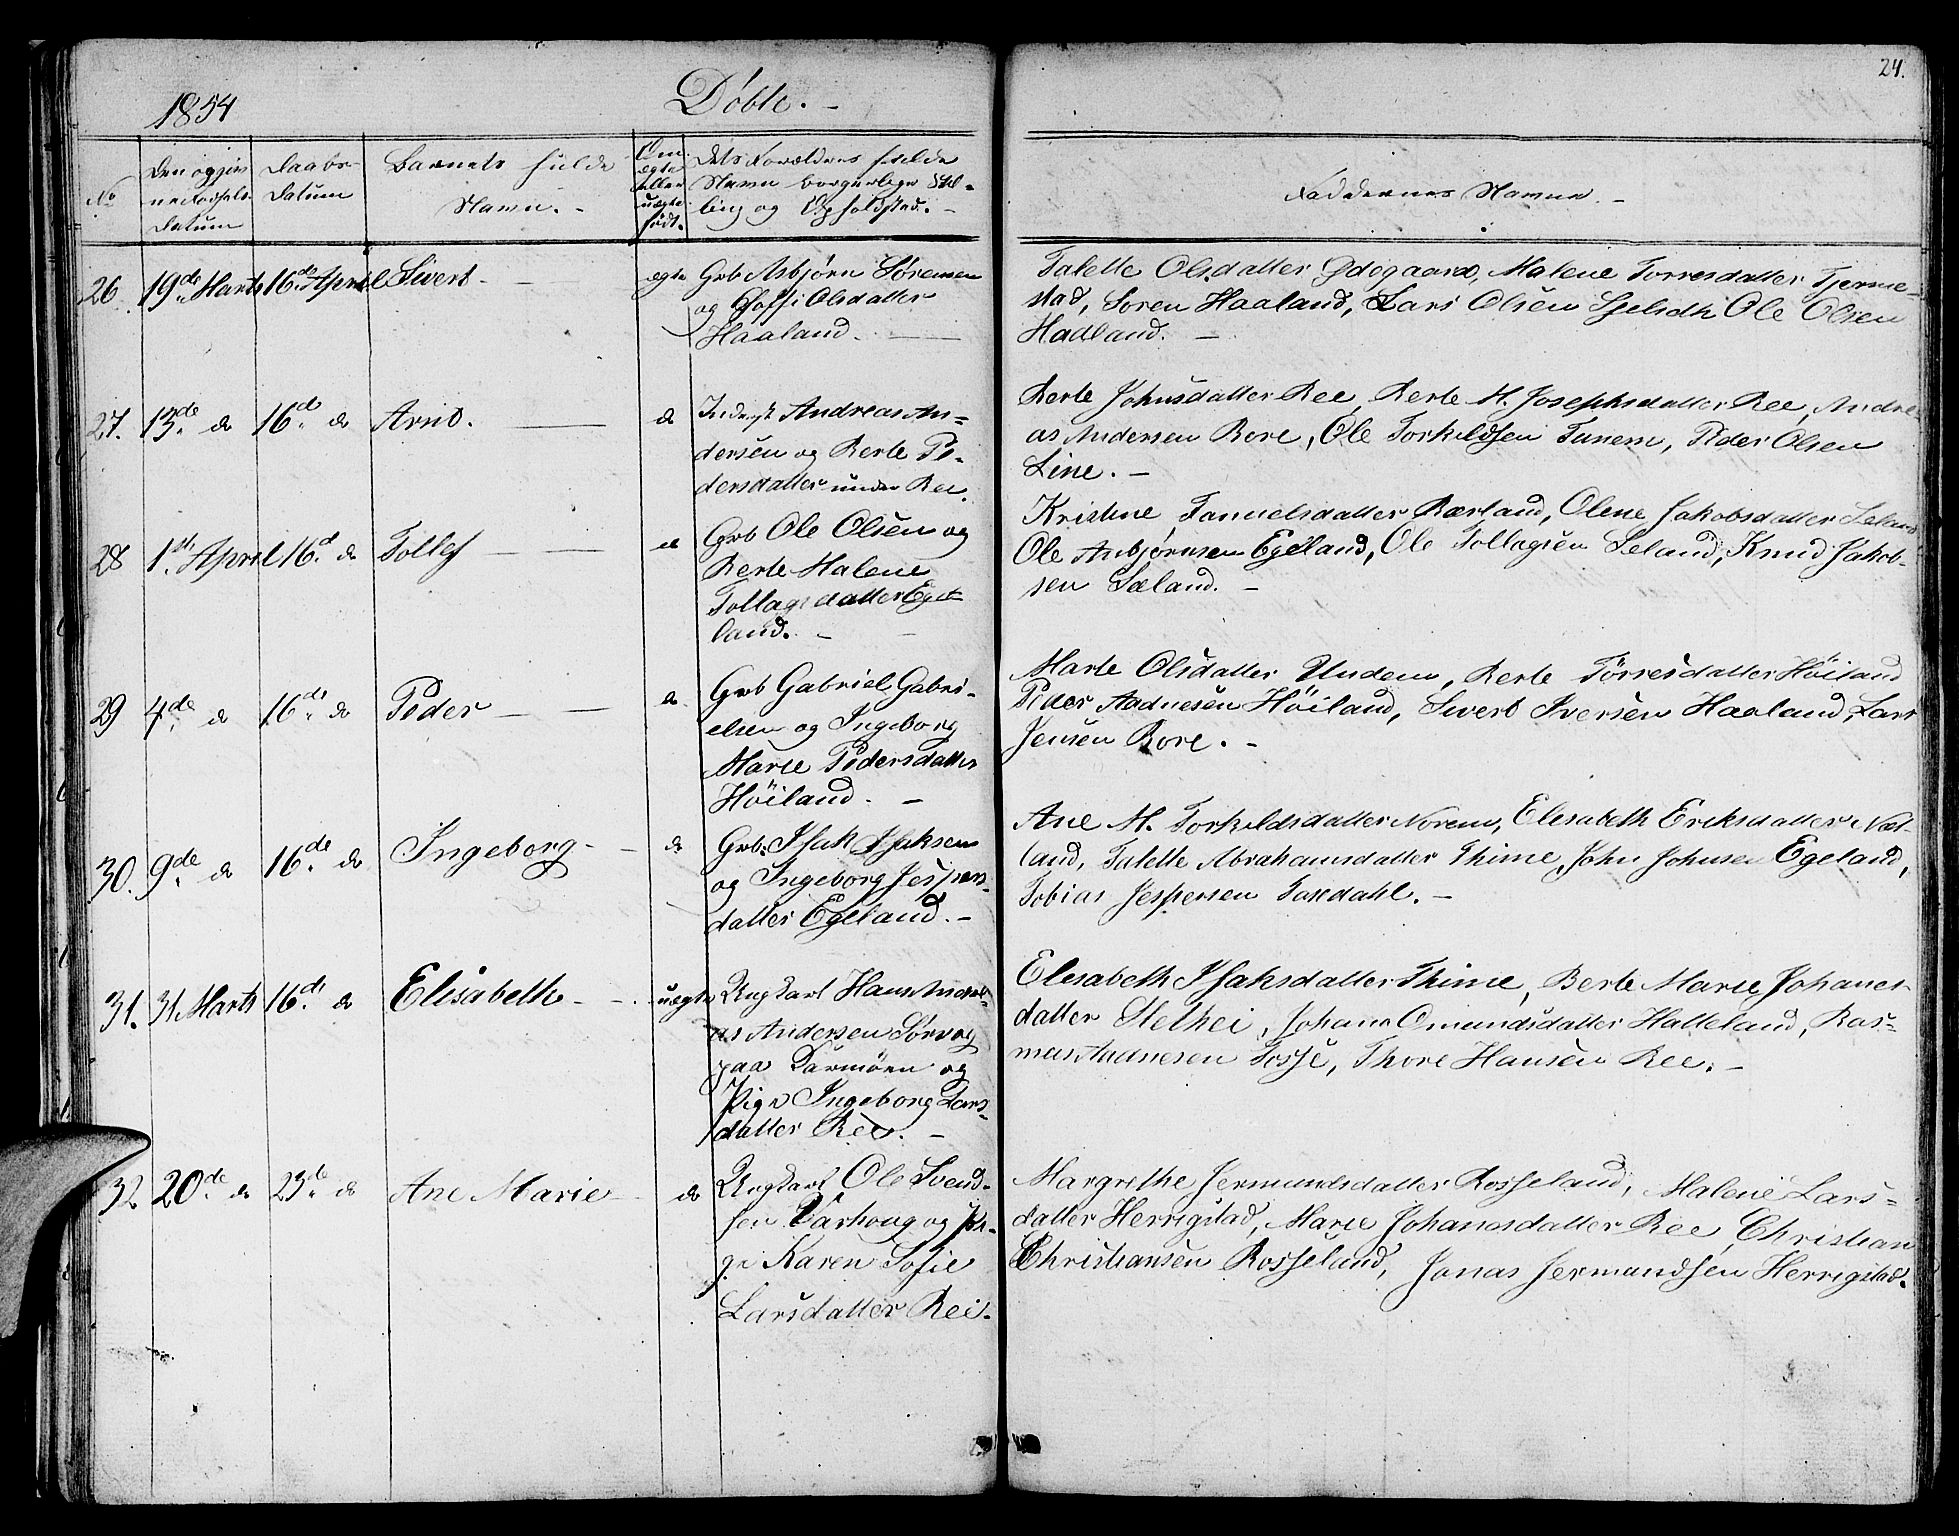 24.
1854
Döbte. -
No
Den opgivne Fødselsdatum
Daabs-Datum
Barnets fulde Navn. -
Om ægte eller uægte født.
Dets Forældres fulde
Navn borgerlige Stil-
ling og Opholdsted. -
Faddernes Navne. -
26 19de Marts 16de April Sivert - ægte
Grb Asbjørn Sørensen
og Olsdatter
Haaland. -
Talette Olsdatter Ødegaard, Malene Torresdatter Tjerme-
stad, Soren Haaland, Lars Olsen Ole Olsen
Hadland. -
27. 13de do 16de do Arnt. - do
Inderst Andreas An-
dersen og Berte Pe-
dersdatter under Ree.
Berte Johnsdatter Ree, Berte M. Josephsdatter Ree, Andre-
as Andersen Bore, Ole Torkildsen Tunem, Peder Olsen
Line. -
28 1ste April 16de do Tollef - do
Grb Ole Olsen og
Berte Malene
Tollagsdatter Ege-
land. -
Kristine Samuelsdatter Bærland, Olene Jakobsdatter Seland
Ole Asbjørnsen Egeland, Ole Tollagsen Seland, Knud Jakob-
sen Sæland. -
29 4de do 16de do Peder - do
Grb Gabriel Gabri-
elsen og Ingeborg
Marie Pedersdatter
Höiland. -
Marte Olsdatter Undem, Berte Törresdatter Höiland
Peder Aadnesen Höiland, Sivert Iversen Haaland, Lars
Jensen Bore. -
30. 9de do 16de do Ingeborg - do
Grb. Isak Isaksen
og Ingeborg Jespers-
datter Egeland. -
Ane M. Torkildsdatter Norem, Elisabeth Eriksdatter Net-
land, Talette Abrahamsdatter Thime, John Johnsen Egeland,
Tobias Jespersen Taxdahl. -
31. 31 Marts 16de do Elisabeth - uægte
Ungkarl Hans Andre-
as Andersen Sørvog
paa Karmöen og
Pige Ingeborg Lars-
datter Ree. -
Elesabeth Isaksdatter Thime, Berte Marie Johanes-
datter Stethei, Johane Omundsdatter Halleland, Ras-
mus Aadnesen Tosse, Thore Hansen Ree. -
32 20de do 23de do Ane Marie - do
Ungkarl Ole Svend-
sen Varhoug og Pi-
ge Karen Sofie
Larsdatter Ree.
Margrethe Jermundsdatter Rosseland, Malene Lars-
datter Herrigstad, Marie Johanesdatter Ree, Christian
Christiansen Rosseland, Jonas Jermundsen Herrigstad.